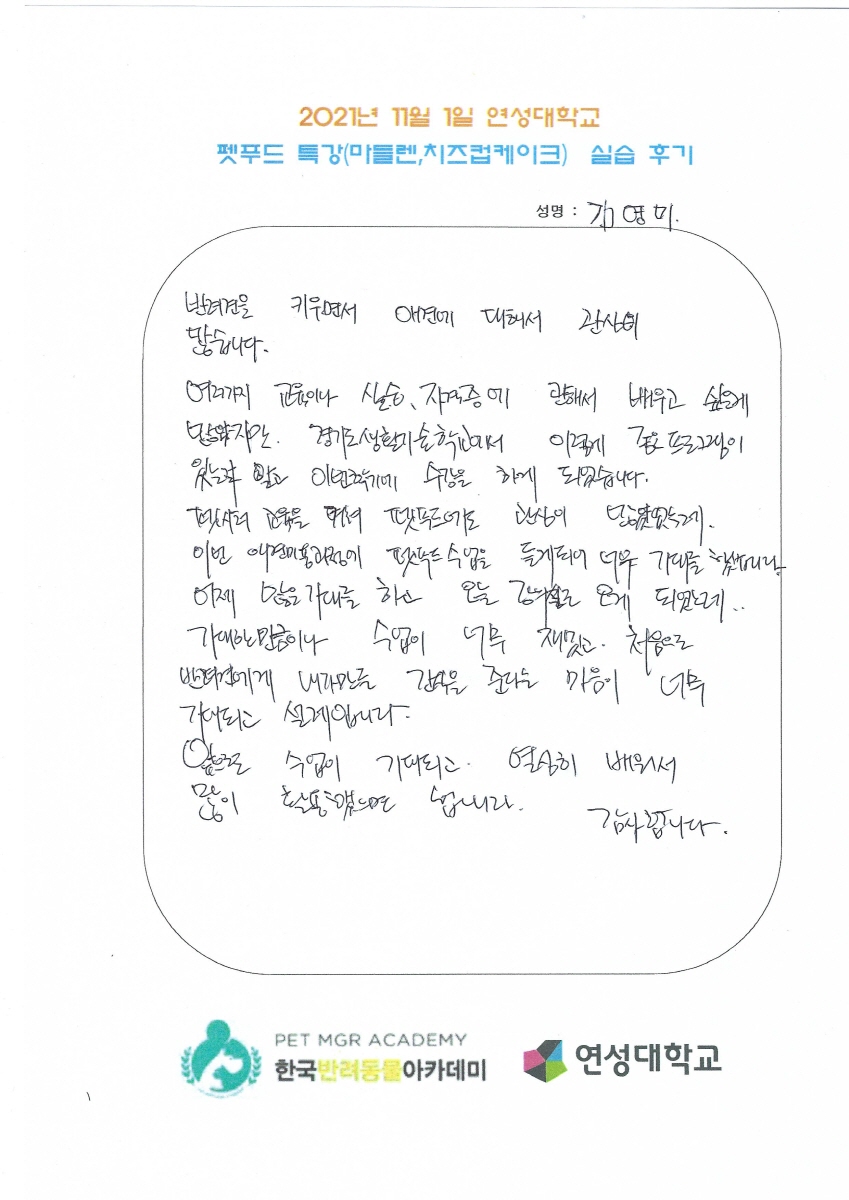 2021년 11월 1일 연성대학교
펫푸드 특강(마들렌,치즈컵케이크) 실습 후기
성명 : 김영미.
반려견을 키우면서 애견에 대해서 관심이
많습니다.
여러가지 교육이나 실습, 자격증에 관해서 배우고 싶은게
많았지만. 경기도생활기술학교에서 이렇게 좋은 프로그램이
있는걸 알고 이번학기에 수강을 하게 되었습니다.
펫시터 교육을 펫푸드에도 관심이
이번 애견미용과정에 펫푸드수업을 듣게되어 너무 기대를 했습니다.
어제 많은기대를 하고 오늘 강의실로 오게 되었는데..
기대한만큼이나 수업이 너무 재밌고. 처음으로
반려견에게 내가만든 간식을 준다는 마음이 너무
기대되고 설레입니다.
앞으로도 수업이 기대되고. 열심히 배워서
많이 활용했으면 합니다.
감사합니다.
PET MGR ACADEMY
한국반려동물아카데미
연성대학교